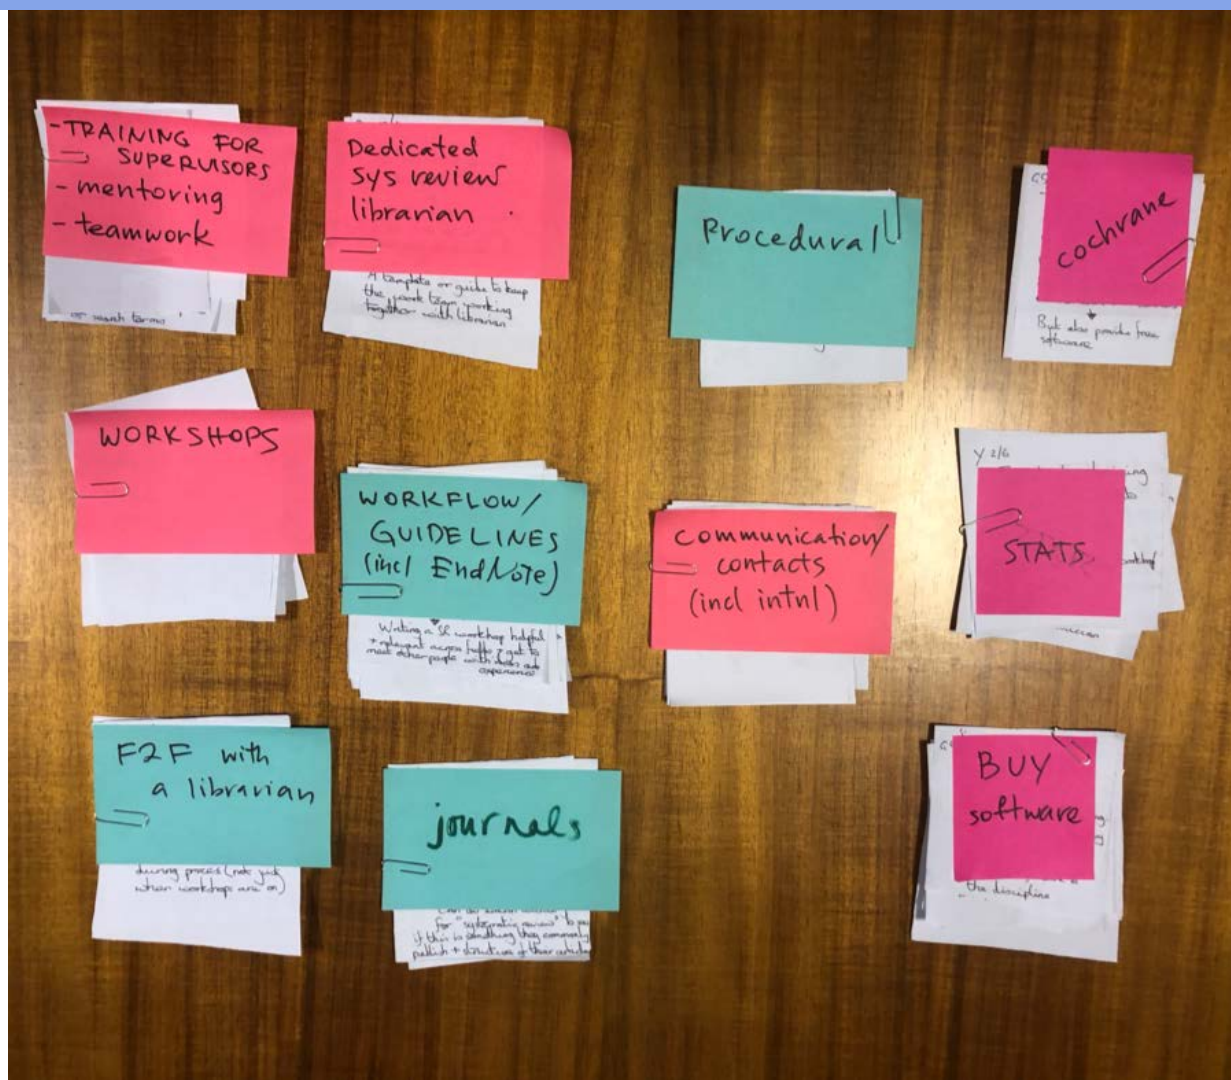 -TRAINING FOR
SUPERVISORS
- mentoring
- teamwork
or search terms
Dedicated
sys review
librarian
A template or guide to keep
the work team working
together with librarian
Procedural
cochrane
But also provide free
software
WORKSHOPS
WORKFLOW/
GUIDELINES
(incl EndNote)
Writing a workshop helpful
+ relevant across + get to
meet other people with
experience
communication/
contacts
(incl intnl)
Y 2/6
STATS
F2F with
a librarian
during process (not just
when workshops are on)
journals
for "systematic review" to
if this is something they commonly
publish + structure of their articles
BUY
software
the discipline